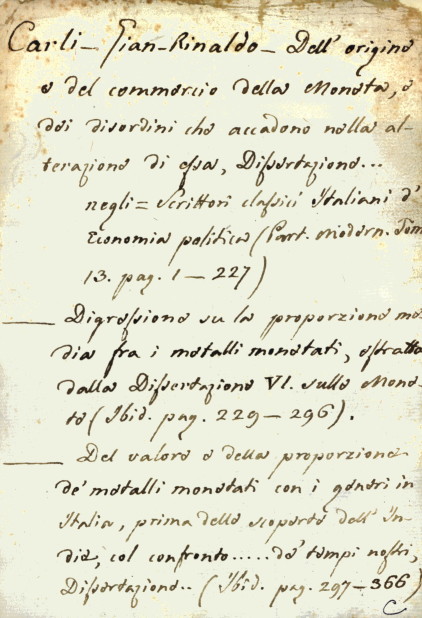 Carli — Gian-Rinaldo — Dell' origine
e del commercio della Moneta, e
dei disordini che accadono nella al-
terazione di essa, Dissertazione...
negli = Scrittori classici Italiani d'
Economia politica (Part. Modern. Tom
13. pag. 1 — 227)
—— Digressione su la proporzione me
dia fra i metalli monetati, estratta
dalla Dissertazione VI. sulle Mone-
te (Ibid. pag. 229 — 296).
—— Del valore e della proporzione
de' metalli monetati con i generi in
Italia, prima delle scoperte dell' In-
die, col confronto..... de' tempi nostri,
Dissertazione.. (Ibid. pag. 297 — 366)
C